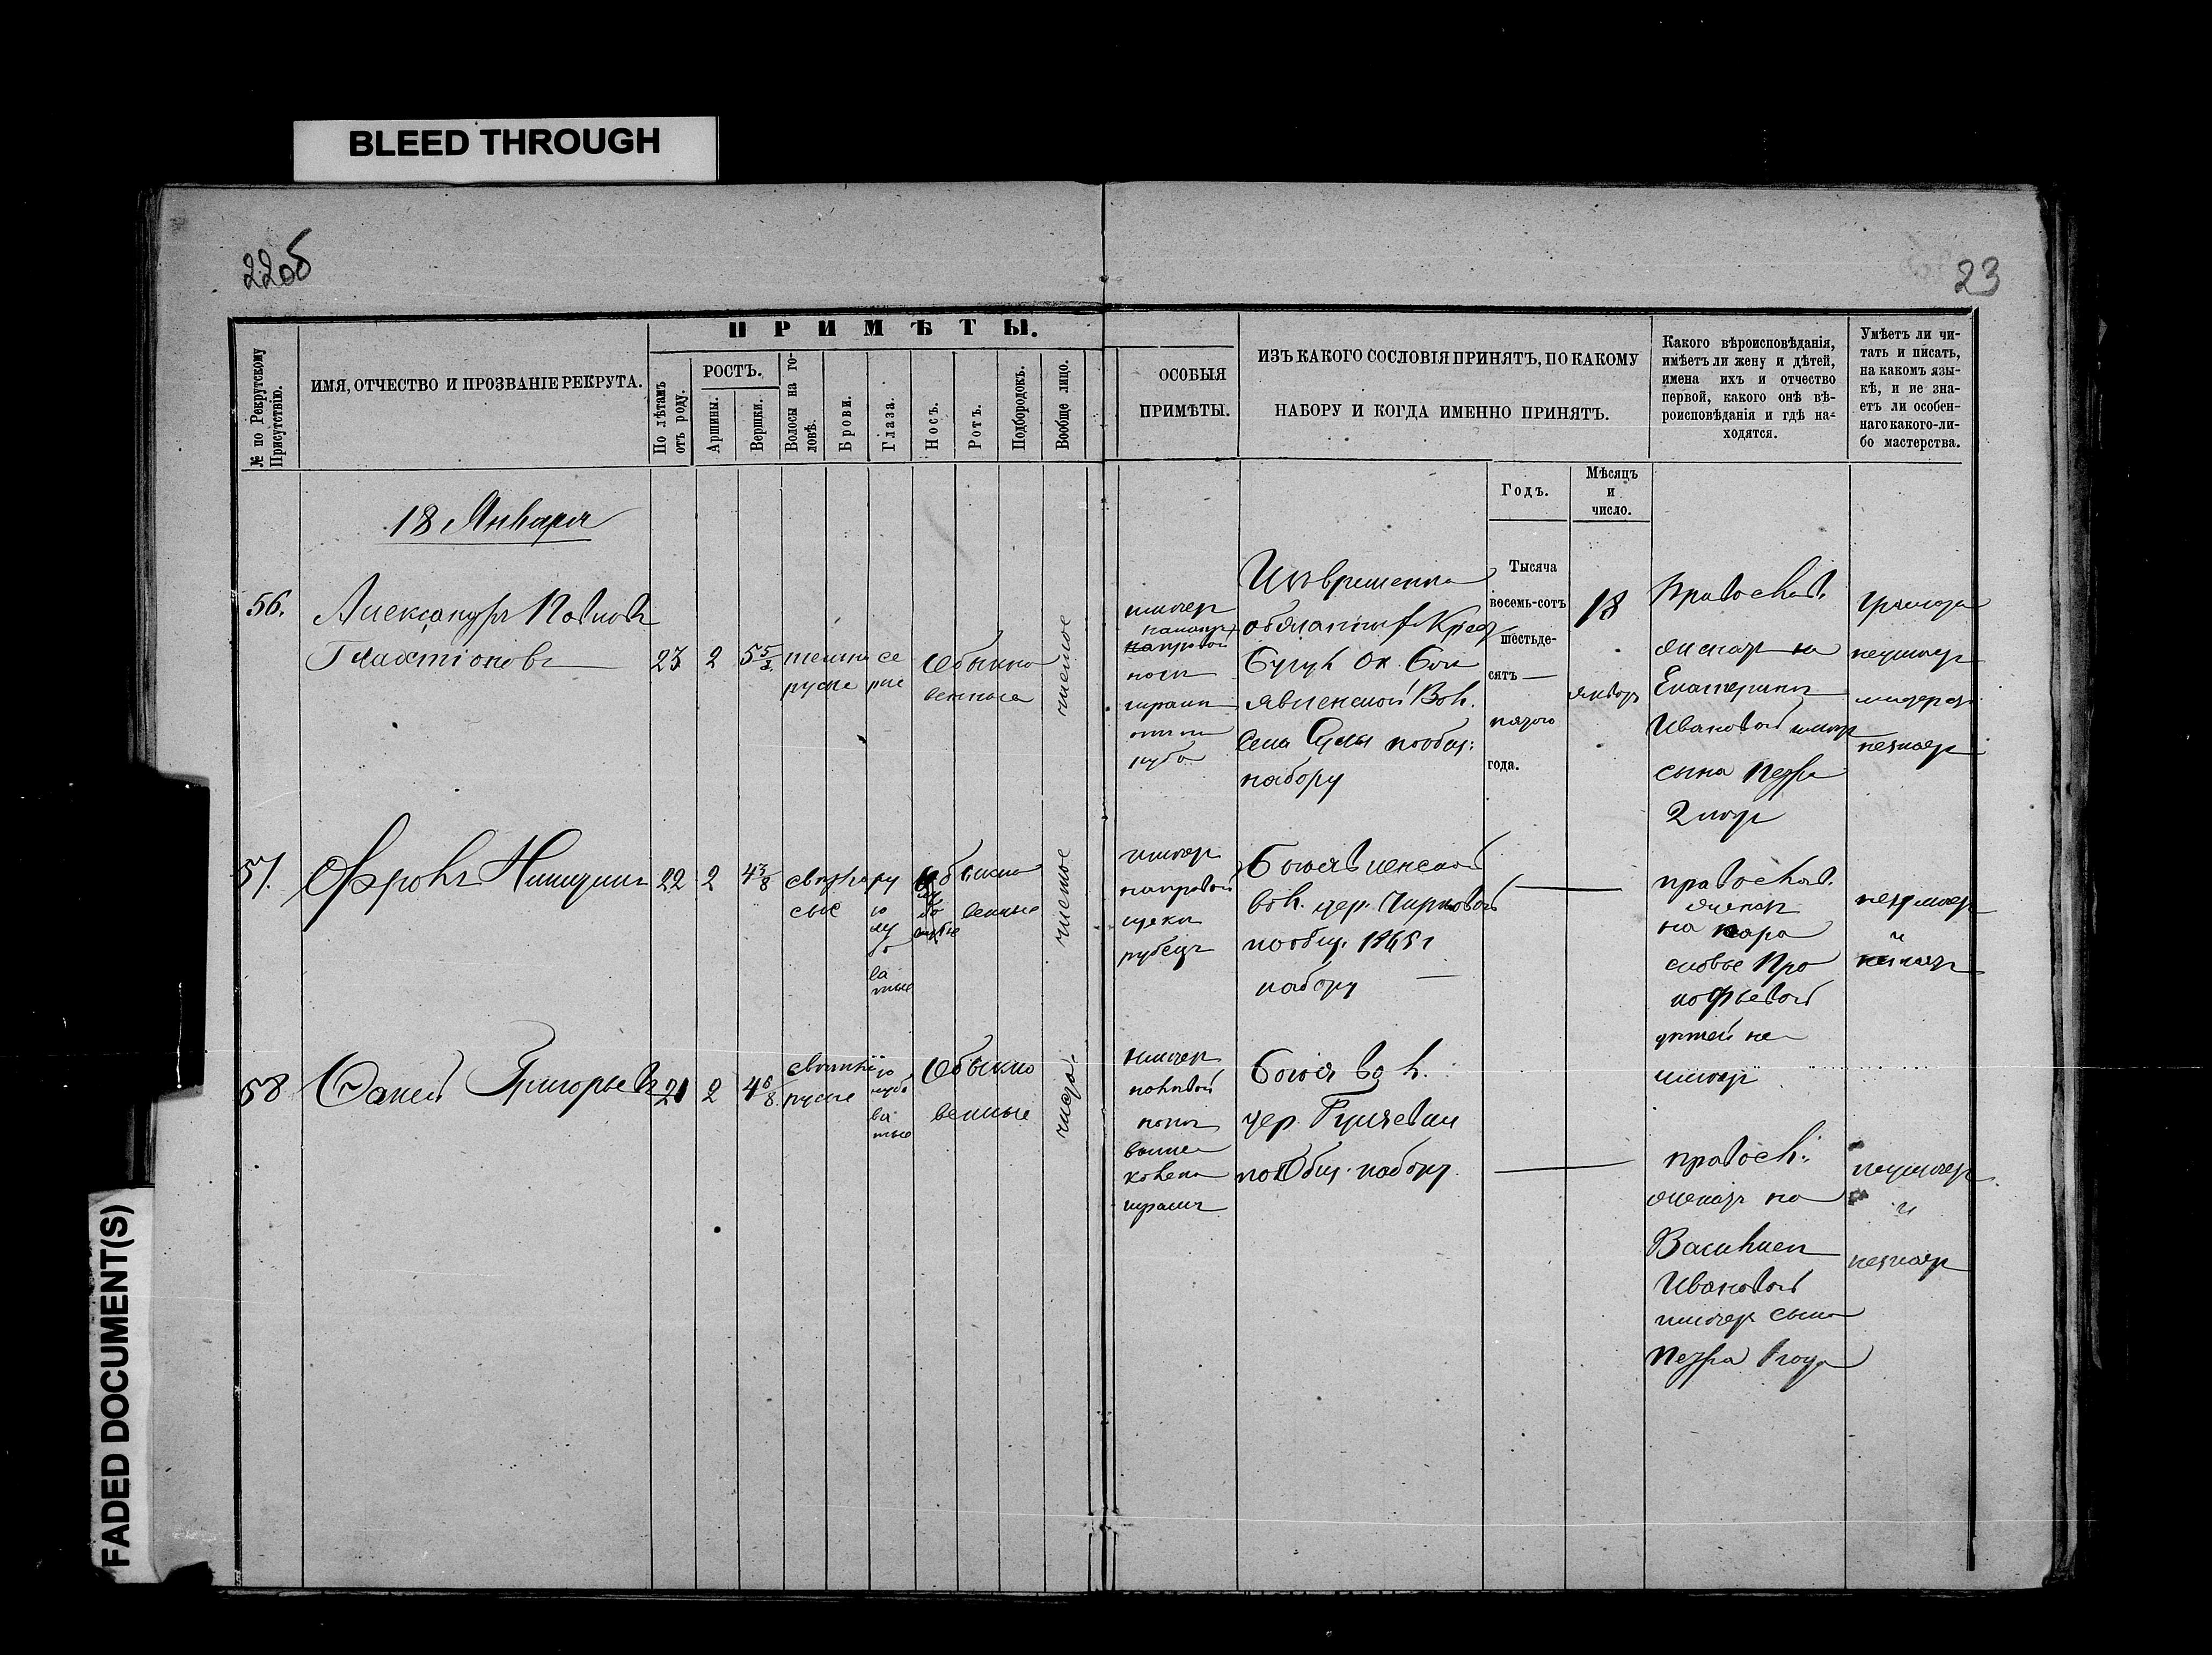 BLEED THROUGH
22об
23
ПРИМѢТЫ.
№ по Рекрутскому Присутствію.
ИМЯ, ОТЧЕСТВО И ПРОЗВАНІЕ РЕКРУТА.
По лѣтамъ отъ роду.
РОСТЪ.
Аршины.
Вершки.
Волосы на головѣ.
Брови.
Глаза.
Носъ.
Ротъ.
Подбородокъ.
Вообще лицо.
ОСОБЫЯ
ПРИМѢТЫ.
ИЗЪ КАКОГО СОСЛОВІЯ ПРИНЯТЪ, ПО КАКОМУ
НАБОРУ И КОГДА ИМЕННО ПРИНЯТЪ.
Какого вѣроисповѣданія,
имѣетъ ли жену и дѣтей,
имена ихъ и отчество
первой, какого онѣ вѣ-
роисповѣданія и гдѣ на-
ходятся.
Умѣетъ ли чи-
тать и писать,
на какомъ язы-
кѣ, и не зна-
етъ ли особен-
наго какого-ли-
бо мастерства.
Годъ.
Мѣсяцъ
и
число.
18 Января
56.
Александръ Павловъ
23 2 5 темно се
русые рые
Обыкно
венные
чистое
имѣетъ
направой
ногѣ
шрамъ
Изъ временно
обязанных Крес
Бугул Ок. Бого
явленской Вол.
Села Сулы пообщ:
набору
Тысяча
восемь-сотъ
шестьде-
сятъ —
пятого
года.
18
январ
Православ.
женатъ на
Екатерины
Ивановой имѣетъ
сына Петра
2 года
грамотѣ
неумѣетъ
мастерст
незнаетъ
57.
Фролъ Никитинъ
22 2 4 3/8 светлору
сые
го
лу
бо
ва
тые
обыкно
венные
чистое
имѣетъ
направой
щеки
рубецъ
Богоявленской
вол. дер. Чирковой
пообщ. 1865 г
набору —
православ.
женатъ
на Пара
сковье Про
кофьевой
дѣтей не
имѣетъ
неумѣетъ
и
незнаетъ
58
Григорьевъ
21 2 4 6/8
светло
русые
голубо
ва
тые
Обыкно
венные
чисто.
имѣетъ
полѣвой
ноги
выше
колена
шрамъ
Богоя вол.
дер.
по Общ. набору
правосл:
женатъ на
Василисѣ
Ивановой
имѣетъ сына
Петра 1 года
неумѣетъ
и
незнаетъ
FADED DOCUMENT(S)